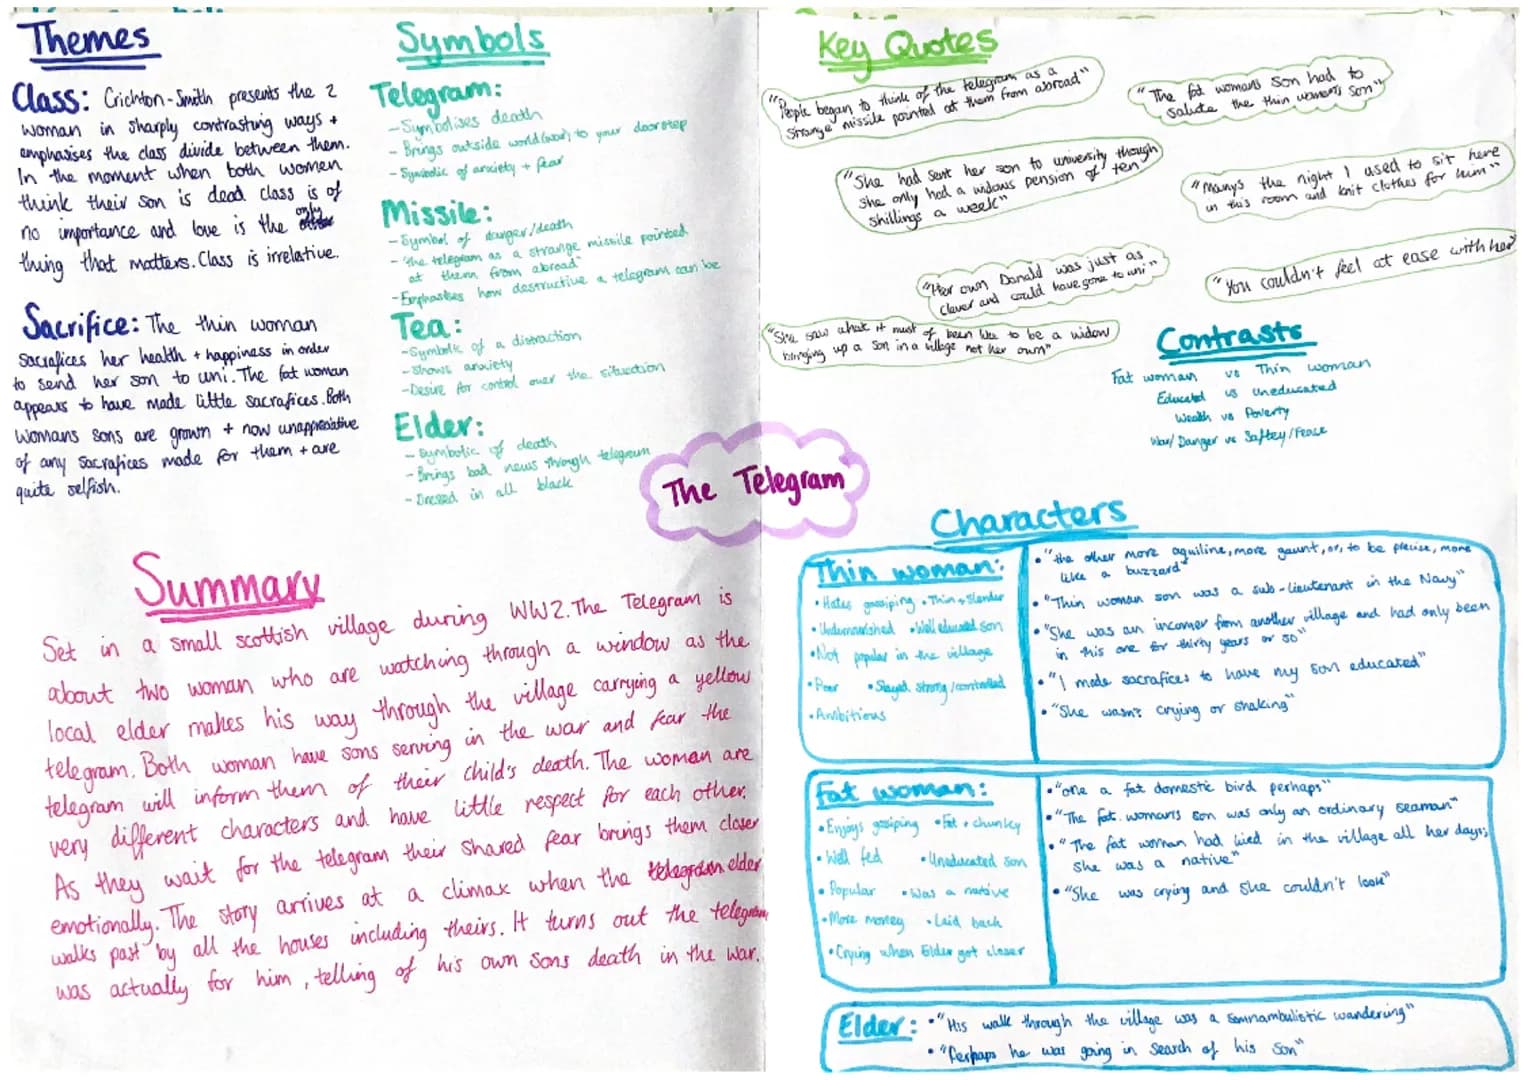 Themes
Class: Crichton-Smith presents the 2
woman in sharply contrasting ways +
emphasises the class divide between them.
In the moment when both women
think their son is dead class is of
no importance and love is the only
thing that matters. Class is irrelative.
Sacrifice: The thin woman
sacrafices her health + happiness in order
to send her son to uni. The fat woman
appears to have made little sacrafices. Both
womans sons are grown + now unappreciative
of any sacrafices made for them + are
quite selfish.
Symbols
Telegram:
- Symbolises death
- Brings outside world (war) to your doorstep
- Symbolic of anxiety + fear
Missile:
- Symbol of danger/death
- "the telegram as a strange missile pointed
at them from abroad"
- Emphasises how destructive a telegram can be
Tea:
- Symbolic of a distraction
- Shows anxiety
- Desire for control over the situation
Elder:
- Symbolic of death
- Brings bad news through telegram
- Dressed in all black
The Telegram
Summary
Set in a small scottish village during WW2. The Telegram is
about two woman who are watching through a window as the
local elder makes his way through the village carrying a yellow
telegram. Both woman have sons serving in the war and fear the
telegram will inform them of their child's death. The woman are
very different characters and have little respect for each other.
As they wait for the telegram their shared fear brings them closer
emotionally. The story arrives at a climax when the telegram elder
walks past by all the houses including theirs. It turns out the telegram
was actually for him, telling of his own sons death in the war.
Key Quotes
"People began to think of the telegram as a
strange missile pointed at them from abroad"
"The fat womans son had to
salute the thin womens son"
"She had sent her son to university though
she only had a widows pension of ten
shillings a week"
"Manys the night I used to sit here
in this room and knit clothes for him"
"Her own Donald was just as
clever and could have gone to uni"
"You couldn't feel at ease with her"
"She saw what it must of been like to be a widow
bringing up a son in a village not her own"
Contrasts
Fat woman vs Thin woman
Educated vs Uneducated
Wealth vs Poverty
War/Danger vs Saftey/Peace
Characters
Thin woman:
• Hates gossiping • Thin + Slender
• Undernourished • Well educated son
• Not popular in the village
• Poor • Stayed strong/controlled
• Ambitious
• "the other more aquiline, more gaunt, or, to be precise, more
like a buzzard"
• "Thin woman son was a sub-lieutenant in the Navy"
• "She was an incomer from another village and had only been
in this one for thirty years or so"
• "I made sacrafices to have my son educated"
• "She wasn't crying or shaking"
Fat woman:
• Enjoys gossiping • Fat + chunky
• Well fed • Uneducated son
• Popular • Was a native
• More money • Laid back
• Crying when Elder got closer
• "one a fat domestic bird perhaps"
• "The fat womans son was only an ordinary seaman"
• "The fat woman had lived in the village all her days;
she was a native"
• "She was crying and she couldn't look"
Elder: • "His walk through the village was a somnambulistic wandering"
• "Perhaps he was going in search of his son"